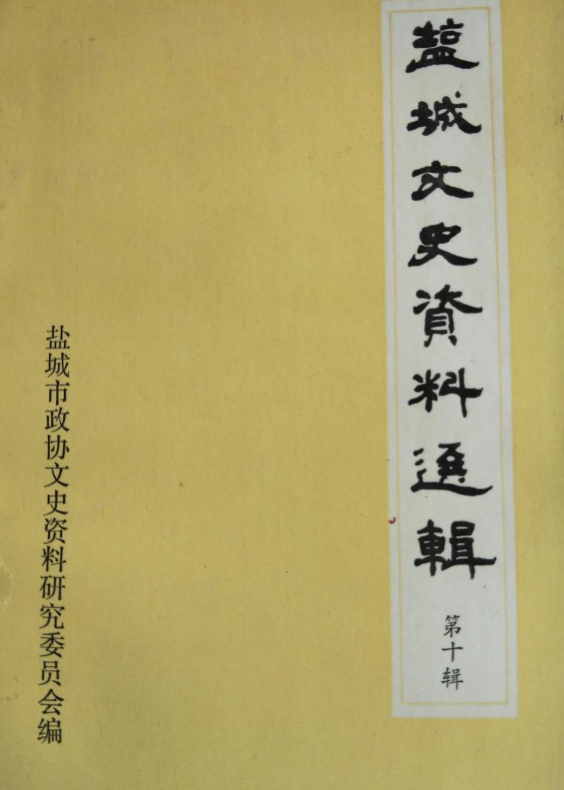 盐城文史資料選輯
第十辑
盐城市政协文史资料研究委员会编